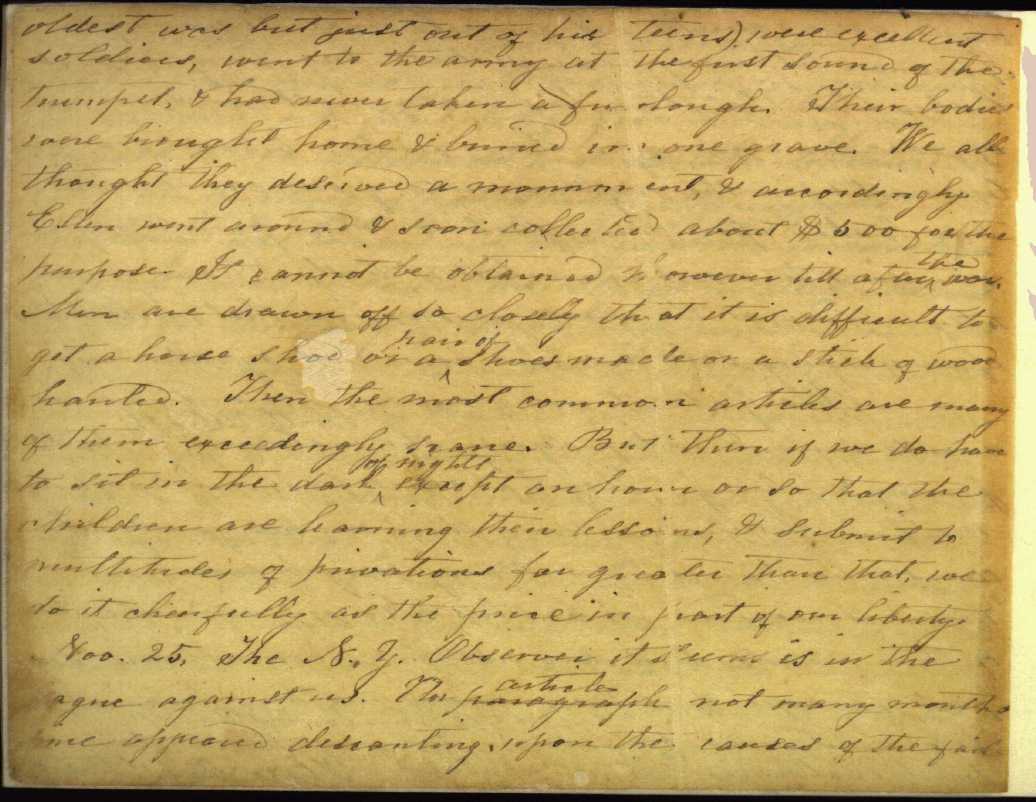 oldest was but just out of his teens), were excellent
soldiers, went to the army at the first sound of the
trumpet, & had never taken a furlough. Their bodies
were brought home & buried in one grave. We all
thought they deserved a monument, & accordingly
went around & soon collected about $500 for the
purpose. It cannot be obtained however till after the war.
Men are drawn off so closely that it is difficult to
get a horse shod or a pair of shoes made or a stick of wood
hauled. Then the most common articles are many
of them exceedingly scarce. But then if we do have
to sit in the dark of nights except an hour or so that the
children are learning their lessons, & submit to
multitudes of privations far greater than that, we
do it cheerfully as the price in part of our liberty.
Nov. 25, The N. Y. Observer it seems is in the
ague against us. The paragraph article not many months
ince appeared descanting upon the causes of the fail